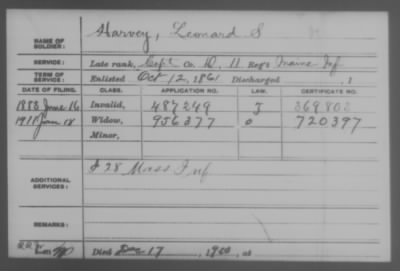 NAME OF SOLDIER: Harvey, Leonard S
SERVICE: Late rank, Corpl Co. D, 11 Reg't Maine Inf
TERM OF SERVICE: Enlisted Oct 12, 1861 Discharged , 1
DATE OF FILING. CLASS. APPLICATION NO. LAW. CERTIFICATE NO.
1888 June 16 Invalid, 487249 J 369802
1911 Jan 18 Widow, 956377 o 720397
Minor,
ADDITIONAL SERVICES: I 28 Mass Inf
REMARKS:
Died Dec 17, 1900, at